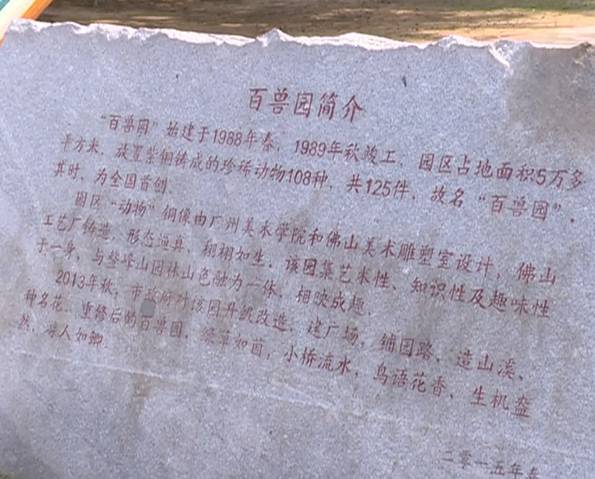 百兽园简介
“百兽园”始建于1988年春，1989年秋竣工，园区占地面积5万多
平方米，放置紫铜铸成的珍稀动物108种，共125件，故名“百兽园”。
其时，为全国首创。
园区“动物”铜像由广州美术学院和佛山美术雕塑室设计，佛山
工艺厂铸造，形态逼真，栩栩如生。该园集艺术性、知识性及趣味性
于一身，与圭峰山园林山色融为一体，相映成趣。
2013年秋，市政府对该园升级改造，建广场，铺园路，造山溪、
种名花。重修后的百兽园，绿草如茵，小桥流水，鸟语花香，生机盎
然，游人如鲫。
二零一五年春